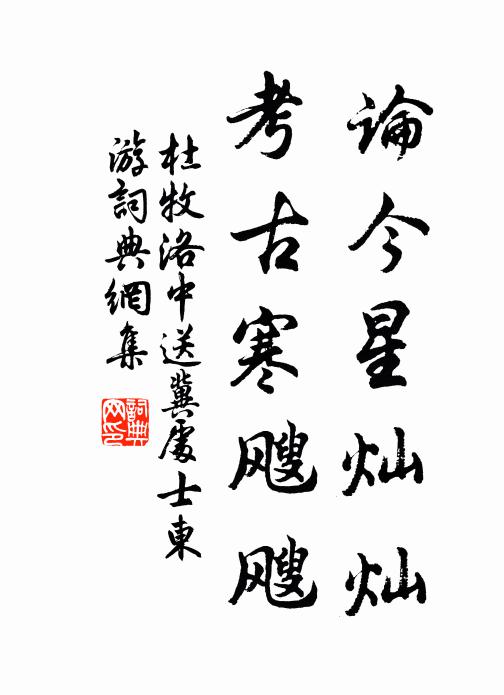 論今星灿灿
考古寒飕飕
杜牧洛中送冀處士東
游詞典網集
詞典
网印